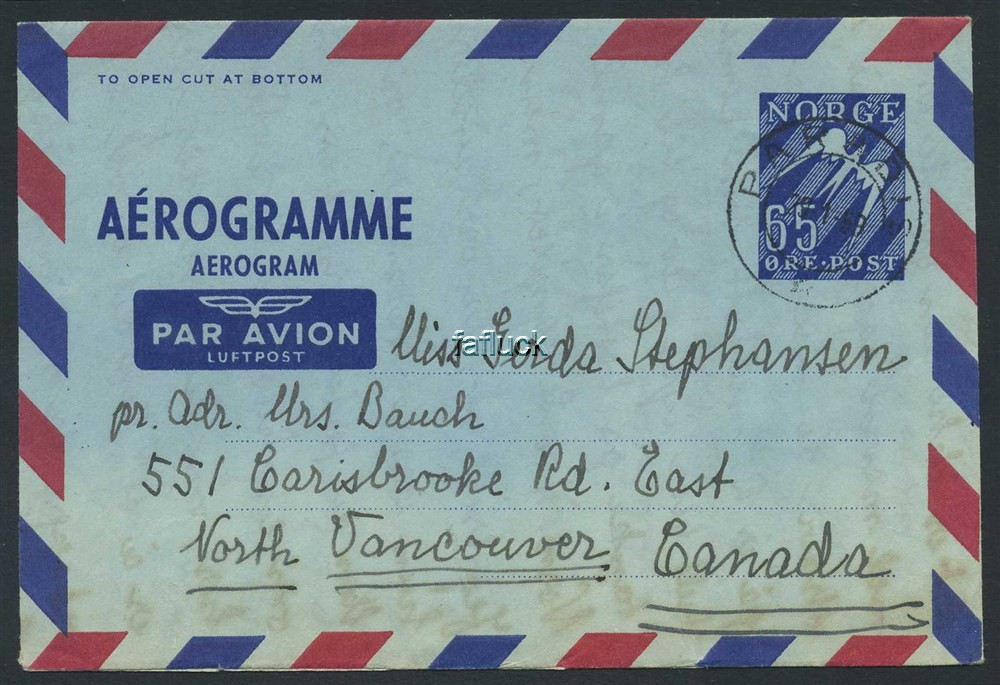 TO OPEN CUT AT BOTTOM
NORGE
65
ØRE·POST
AÉROGRAMME
AEROGRAM
PAR AVION
LUFTPOST
fafluck
Miss Gerda Stephansen
pr. Adr. Mrs. Bauch
551 Carisbrooke Rd. East
North Vancouver Canada